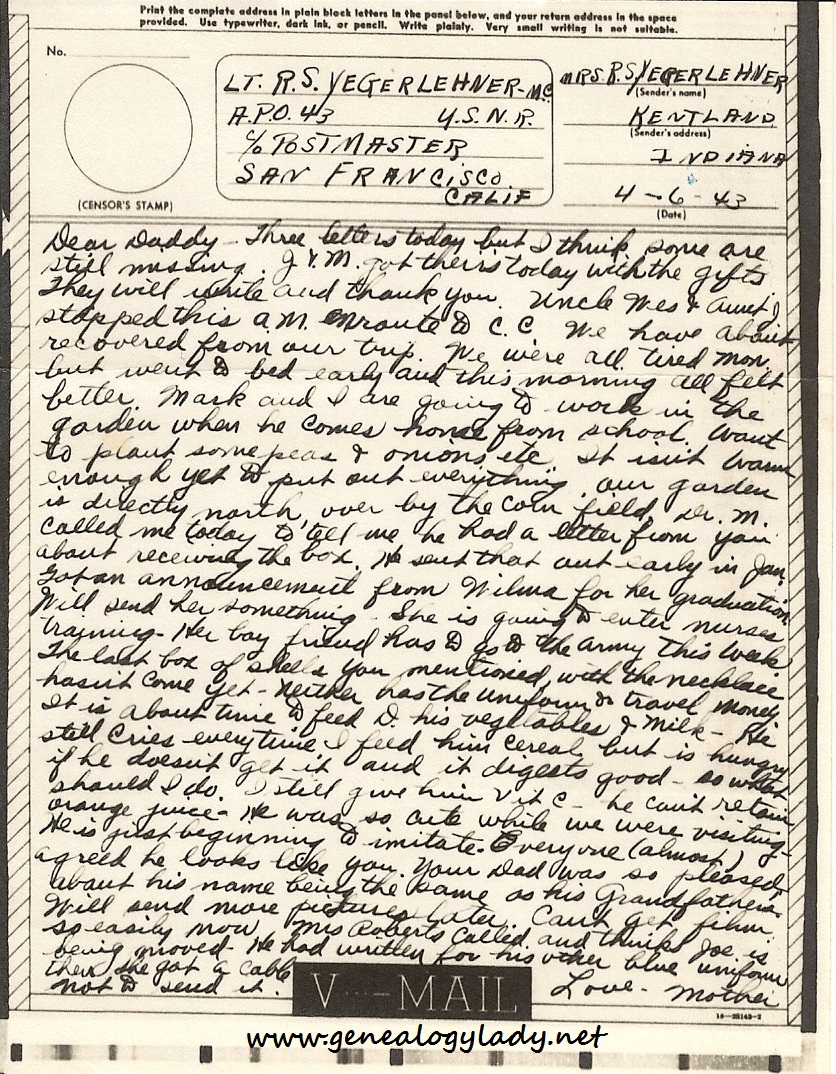 Print the complete address in plain block letters in the panel below, and your return address in the space
provided. Use typewriter, dark ink, or pencil. Write plainly. Very small writing is not suitable.
No.
(CENSOR'S STAMP)
LT. R.S. YEGERLEHNER-MC
A.P.O. 43 U.S.N.R.
c/o POSTMASTER
SAN FRANCISCO
CALIF
MRS. R.S. YEGERLEHNER
(Sender's name)
KENTLAND
(Sender's address)
INDIANA
4-6-43
(Date)
Dear Daddy - Three letters today but I think some are
still missing. J & M. got theirs today with the gifts
They will write and thank you. Uncle Wes & Aunt J
stopped this a.m. enroute to C.C. We have about
recovered from our trip. We were all tired Mon.
but went to bed early and this morning all felt
better. Mark and I are going to work in the
garden when he comes home from school. Want
to plant some peas & onions etc. It isn't warm
enough yet to put out everything. Our garden
is directly north, over by the corn field. Dr. M.
called me today to tell me he had a letter from you
about receiving the box. He sent that out early in Jan.
Got an announcement from Wilma for her graduation.
Will send her something - She is going to enter nurses
training - Her boy friend has to go to the army this week
The last box of shells you mentioned, with the necklace
hasn't come yet - Neither has the uniform or travel money
It is about time to feed D. his vegetables & milk - He
still cries everytime I feed him cereal but is hungry
if he doesn't get it and it digests good - so what
should I do. I still give him Vit C - he can't retain
orange juice - He was so cute while we were visiting -
He is just beginning to imitate. Everyone (almost)
agreed he looks like you. Your Dad was so pleased
about his name being the same as his Grandfathers.
Will send more pictures later. Can't get film
so easily now. Mrs Roberts called and thinks Joe is
being moved - He had written for his other blue uniform
then she got a cable
not to send it. Love - Mother
V···-MAIL
16-28143-2
www.genealogylady.net